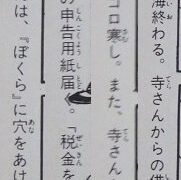 海終わる。寺さんからの
コロ寒し。また、寺さん
の申告用紙届く。「税金を
は、『ぼくら』に穴をあけ